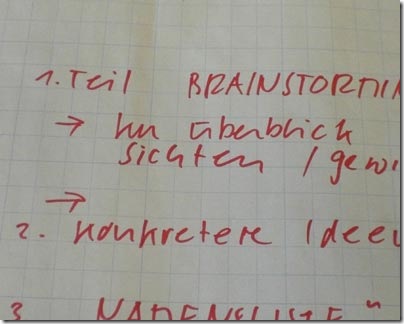 1. Teil BRAINSTORMIN
→ Um Überblick
sichten / gewi
→
2. Konkretere Idee
3 NAMENSLISTE "